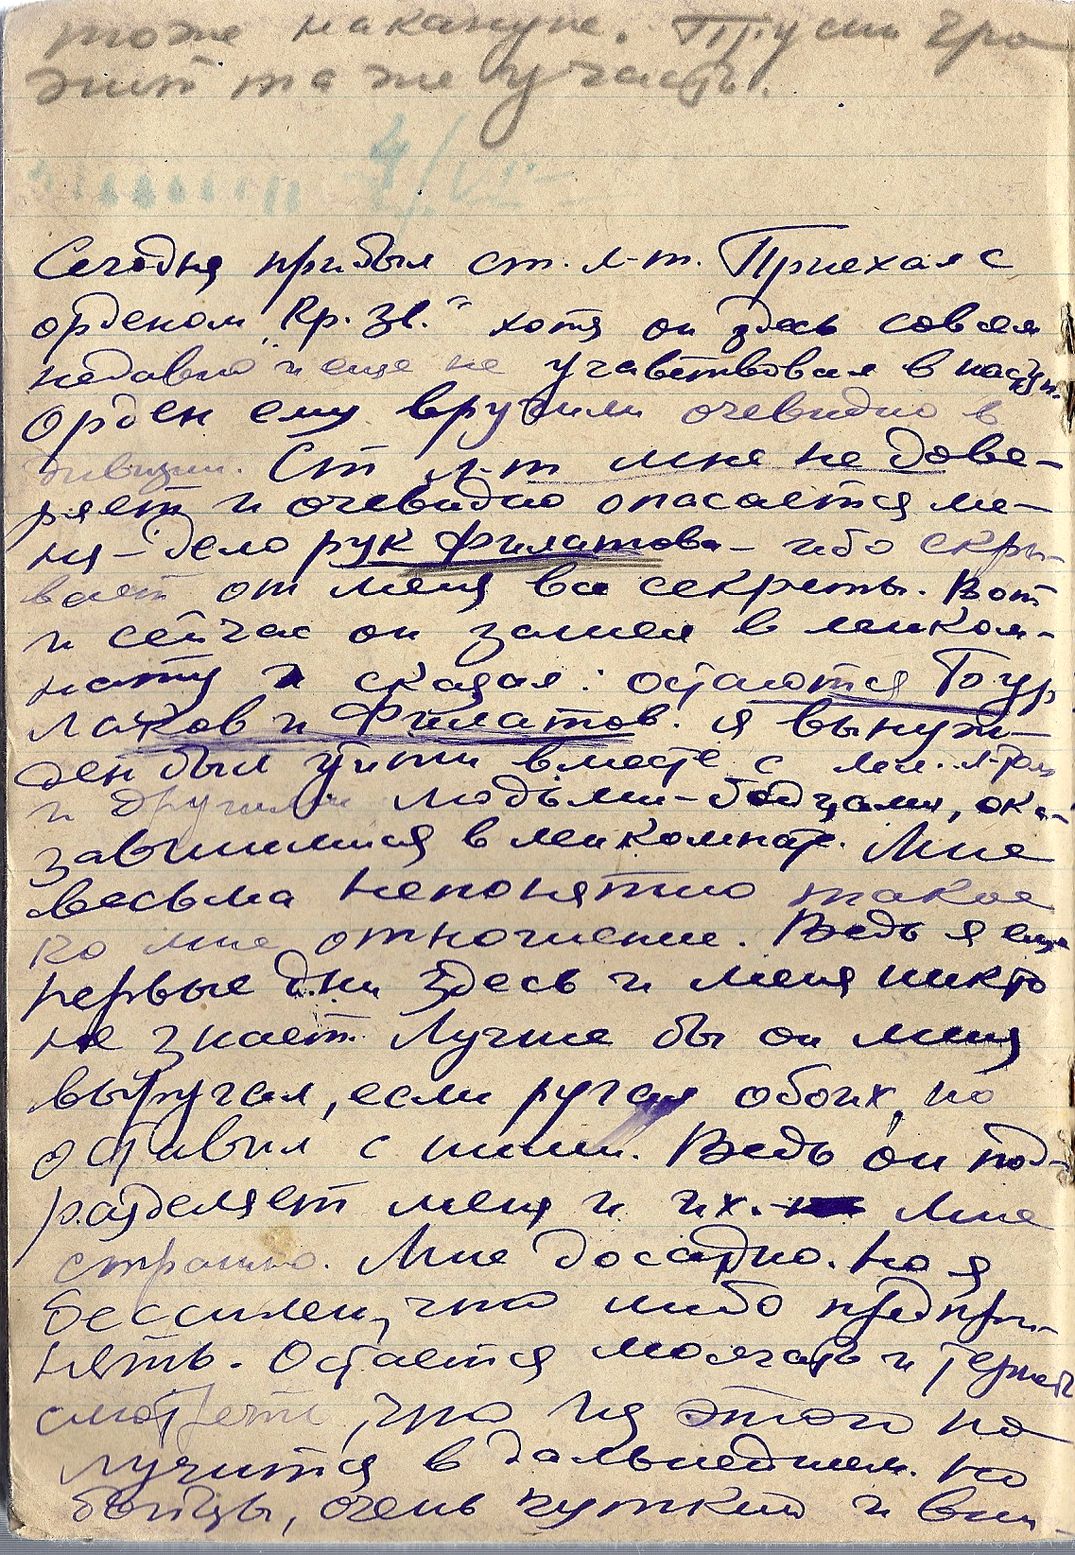 тоже накануне. Пусть гро-
зит та же участь.
4/VI-
Сегодня прибыл ст. л-т. Приехал с
орденом „Кр. Зв.“ хотя он здесь совсем
недавно и еще не учавствовал в наступ.
Орден ему вручили очевидно в
дивизии. Ст л-т мне не дове-
ряет и очевидно опасается ме-
ня – дело рук Филатова – ибо скры-
вает от меня все секреты. Вот
и сейчас он зашел в миком-
нату и сказал: остаются Бур
лаков и Филатов. Я вынуж-
ден был уйти вместе с мл. л-том
и другими людьми – бойцами, ока-
завшимися в микомнате. Мне
весьма непонятно такое
ко мне отношение. Ведь я еще
первые дни здесь и меня никто
не знает. Лучше бы он меня
выругал, если ругал обоих, но
оставил с ними. Ведь он под-
разделяет меня и их. Мне
страшно. Мне досадно. Но я
бессилен, что либо предпри-
нять. Остается молчать и терпеть
смотреть, что из этого по-
лучится в дальнейшем. Но
бойцы, очень чуткий и вни-